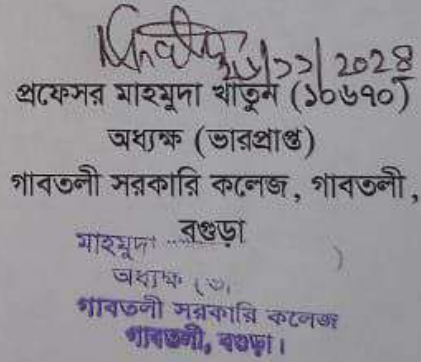 ২০২৪
প্রফেসর মাহমুদা খাতুন (১০৬৭০)
অধ্যক্ষ (ভারপ্রাপ্ত)
গাবতলী সরকারি কলেজ, গাবতলী,
বগুড়া
মাহমুদা
অধ্যক্ষ (ভা
গাবতলী সরকারি কলেজ
গাবতলী, বগুড়া।